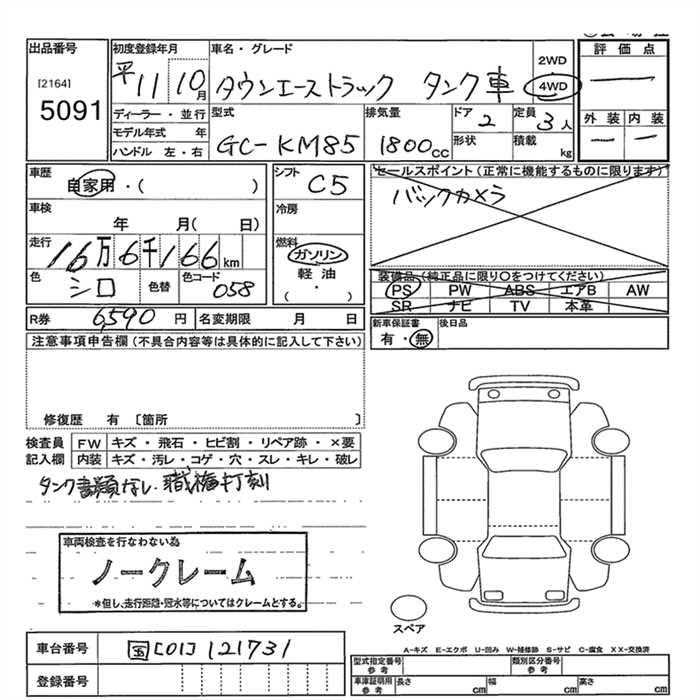 出品番号
[2164]
5091
初度登録年月
平11 10月
ディーラー・並行
モデル年式 年
ハンドル 左・右
車名・グレード
タウンエーストラック タンク車
2WD
4WD
型式
GC-KM85
排気量
1800cc
ドア
2
形状
定員
3人
積載
kg
評価点
—
外装 内装
— —
車歴
自家用・( )
車検
年 月( 日)
走行
16万6千166km
色
シロ
色替
色コード
058
シフト
C5
冷房
燃料
ガソリン
軽油
( ・ )
セールスポイント(正常に機能するものに限ります)
バックカメラ
装備品(純正品に限り○をつけてください)
PS PW ABS エアB AW
SR ナビ TV 本革
R券 6,590 円 名変期限 月 日
新車保証書
有・無
後日品
注意事項申告欄(不具合内容等は具体的に記入して下さい)
修復歴 有 [箇所 ]
検査員
記入欄
FW キズ・飛石・ヒビ割・リペア跡・×要
内装 キズ・汚レ・コゲ・穴・スレ・キレ・破レ
タンク書類なし 職権打刻
車両検査を行なわない為
ノークレーム
*但し、走行距離・冠水等についてはクレームとする。
スペア
A-キズ E-エクボ U-凹み W-補修跡 S-サビ C-腐食 XX-交換済
車台番号 国[01]121731
登録番号
型式指定番号
参考
類別区分番号
参考
車庫証明用
参考
長さ cm 幅 cm 高さ cm